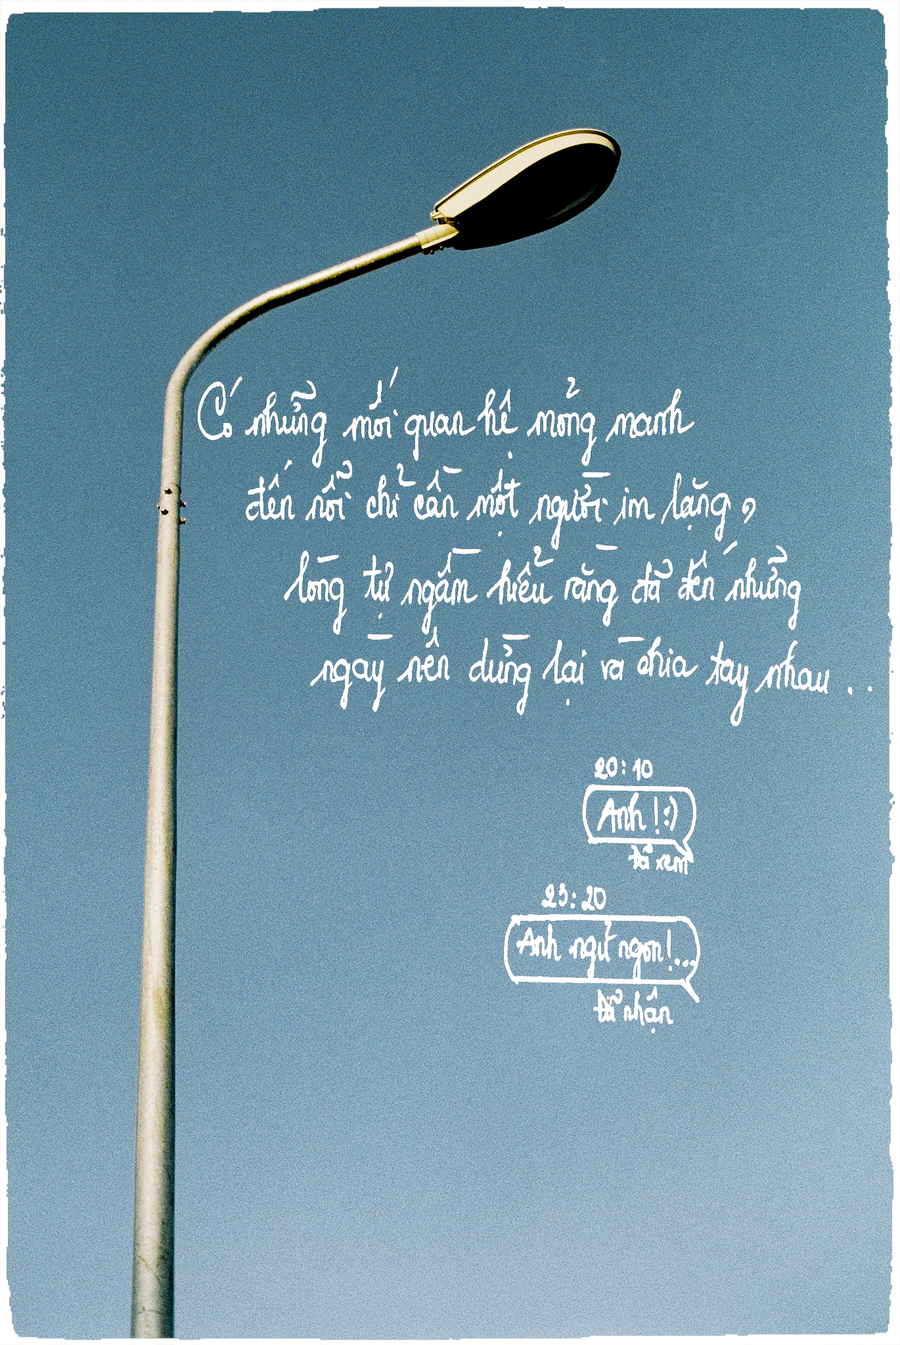 Có những mối quan hệ mỏng manh
đến nỗi chỉ cần một người im lặng,
lòng tự ngầm hiểu rằng đã đến những
ngày nên dừng lại và chia tay nhau ..
20:10
Anh !:)
Đã xem
23:20
Anh ngủ ngon!...
Đã nhận